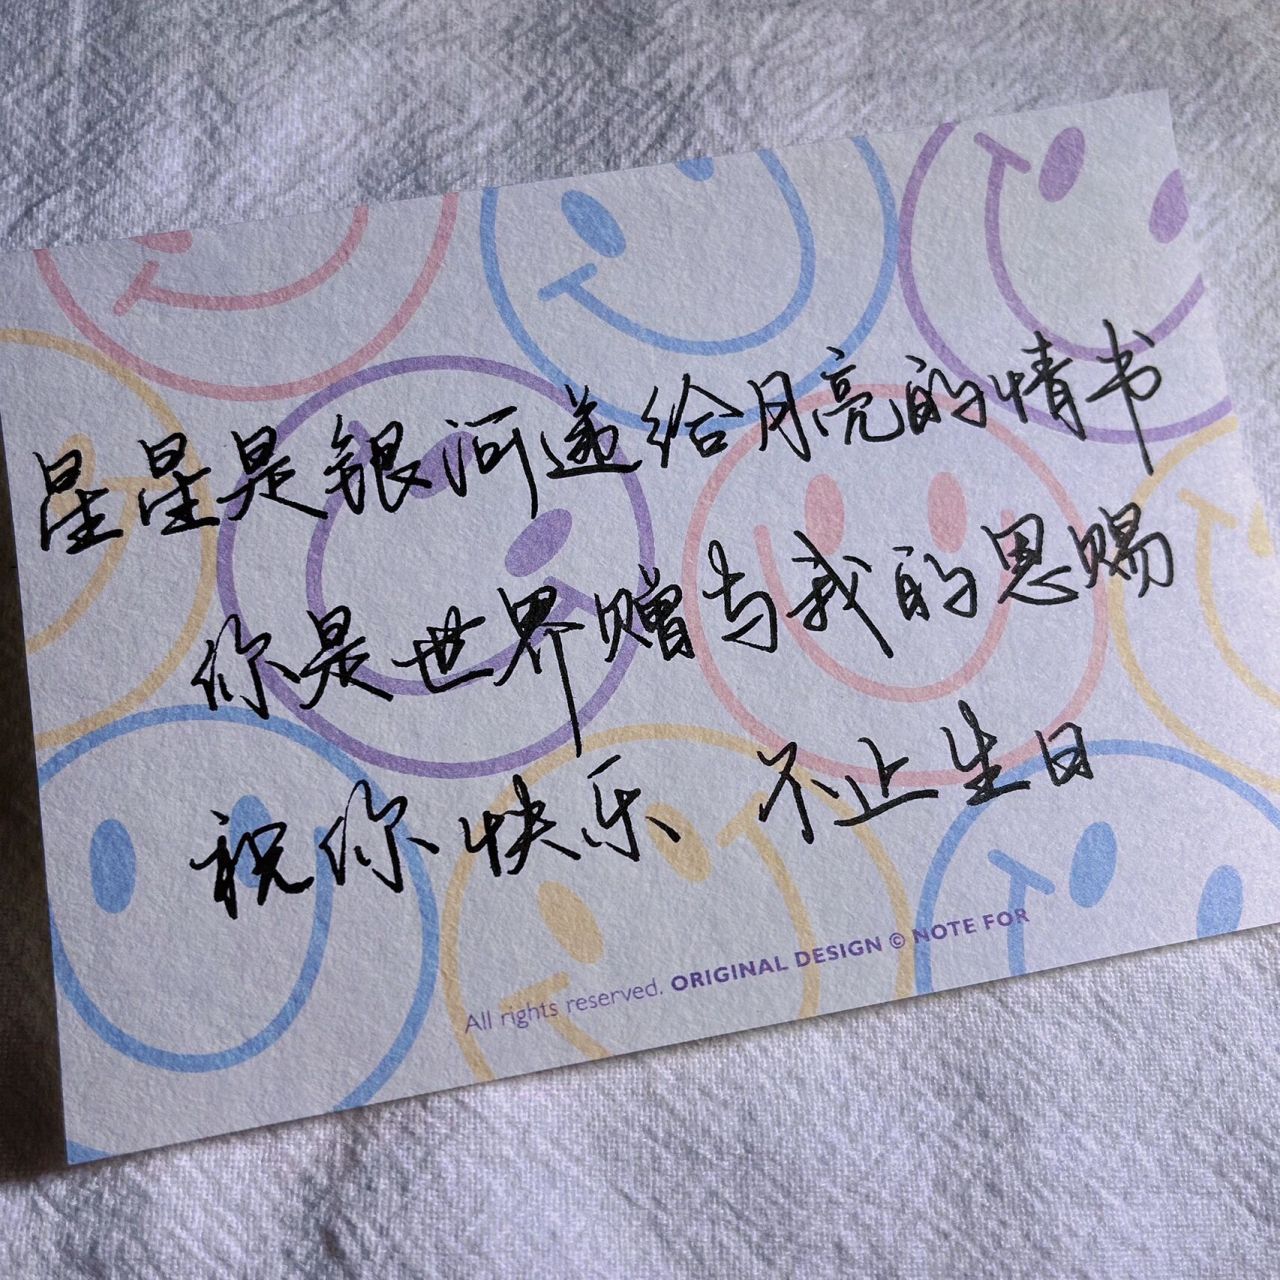 星星是银河递给月亮的情书
你是世界赠与我的恩赐
祝你快乐 不止生日
All rights reserved. ORIGINAL DESIGN © NOTE FOR